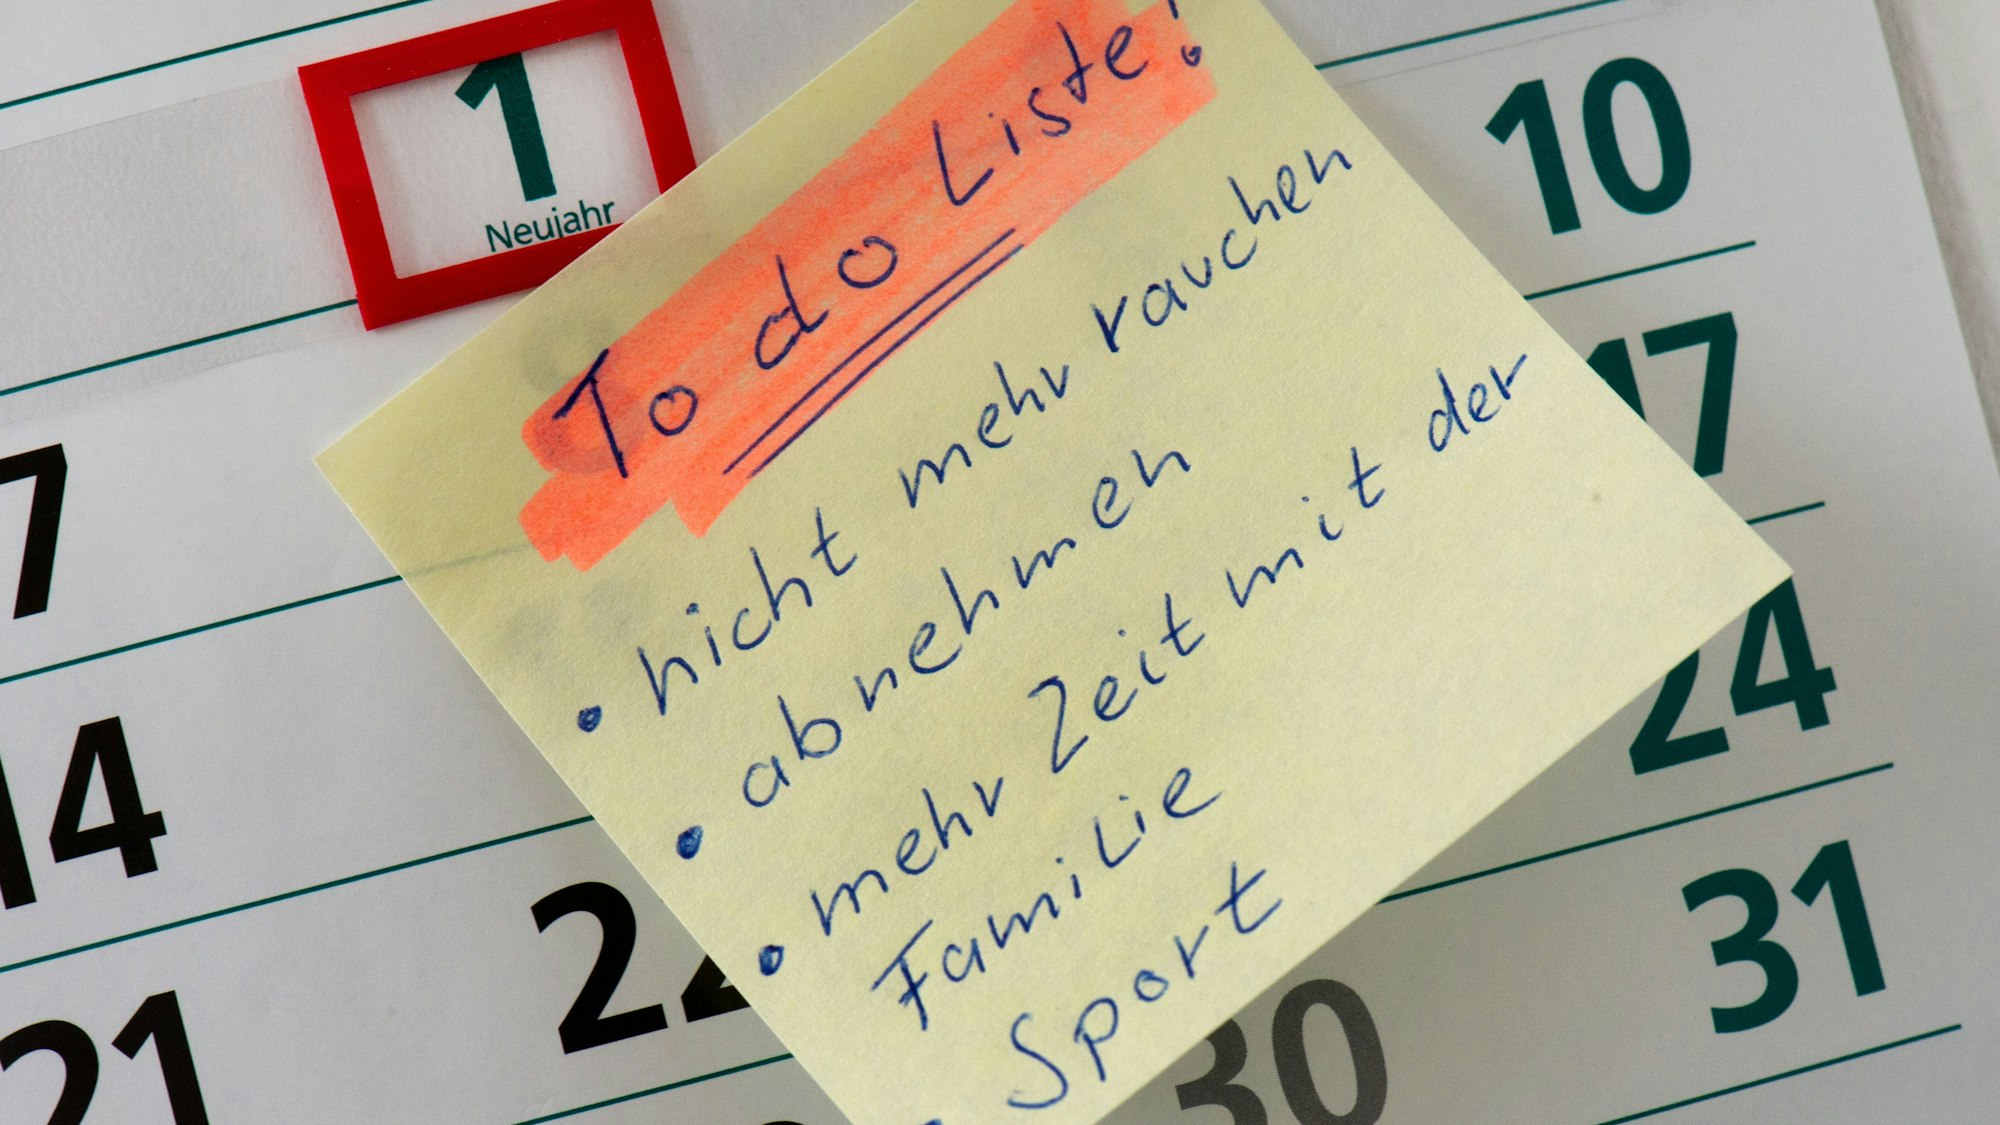 1
Neujahr
10
17
24
31
7
14
21
22
30
To do Liste!
• nicht mehr rauchen
• abnehmen
• mehr Zeit mit der
Familie
• Sport